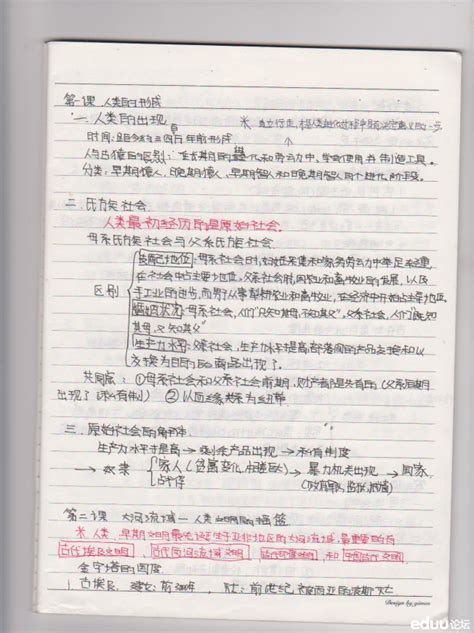 第一课 人类的形成
一. 人类的出现 * 直立行走,是人类进化过程中具有决定意义的一步
时间:距今约三四百年前形成
人与古猿的区别:在长期的进化和劳动力中,学会使用并制造工具。
分类:早期猿人、晚期猿人、早期智人和晚期智人四个进化阶段。
二. 氏族社会
人类最初经历的是原始社会.
母系氏族社会与父系氏族社会
妇女地位:母系社会时,妇女在采集和家务劳动力中举足轻重,
在社会中占主要地位。父系社会时,因农业和畜牧业的发展,以及
区别
手工业的进步,而男子从事犁耕农业和畜牧业,在经济中开始占主导地位
婚姻状况:母系社会,人们"只知其母,不知其父"。父系社会,人们既知
其母,又知其父"
生产力水平:父系社会,生产力水平提高,部落间的产品交换和以
交换为目的的商品出现了。
共同点:①母系社会和父系社会前期,财产都是共有的(父系后期
出现了私有制) ②以血缘关系为纽带
三. 原始社会的解体.
生产力水平提高→剩余产品出现→私有制度
→奴隶 家人(贫富变化,) →暴力机关出现→国家.
战俘 (政府军队,监狱,)
第二课 大河流域—人类文明的摇篮
* 人类早期文明最先诞生亚非地区的大河流域,最重要的有
古代埃及文明 古代两河流域文明 古代印度文明 和中国古代文明.
金字塔的国度
1. 古埃及. 建: 前3000年, 亡: 前世纪被西亚的波斯灭亡
Design by yimoo
eduu论坛